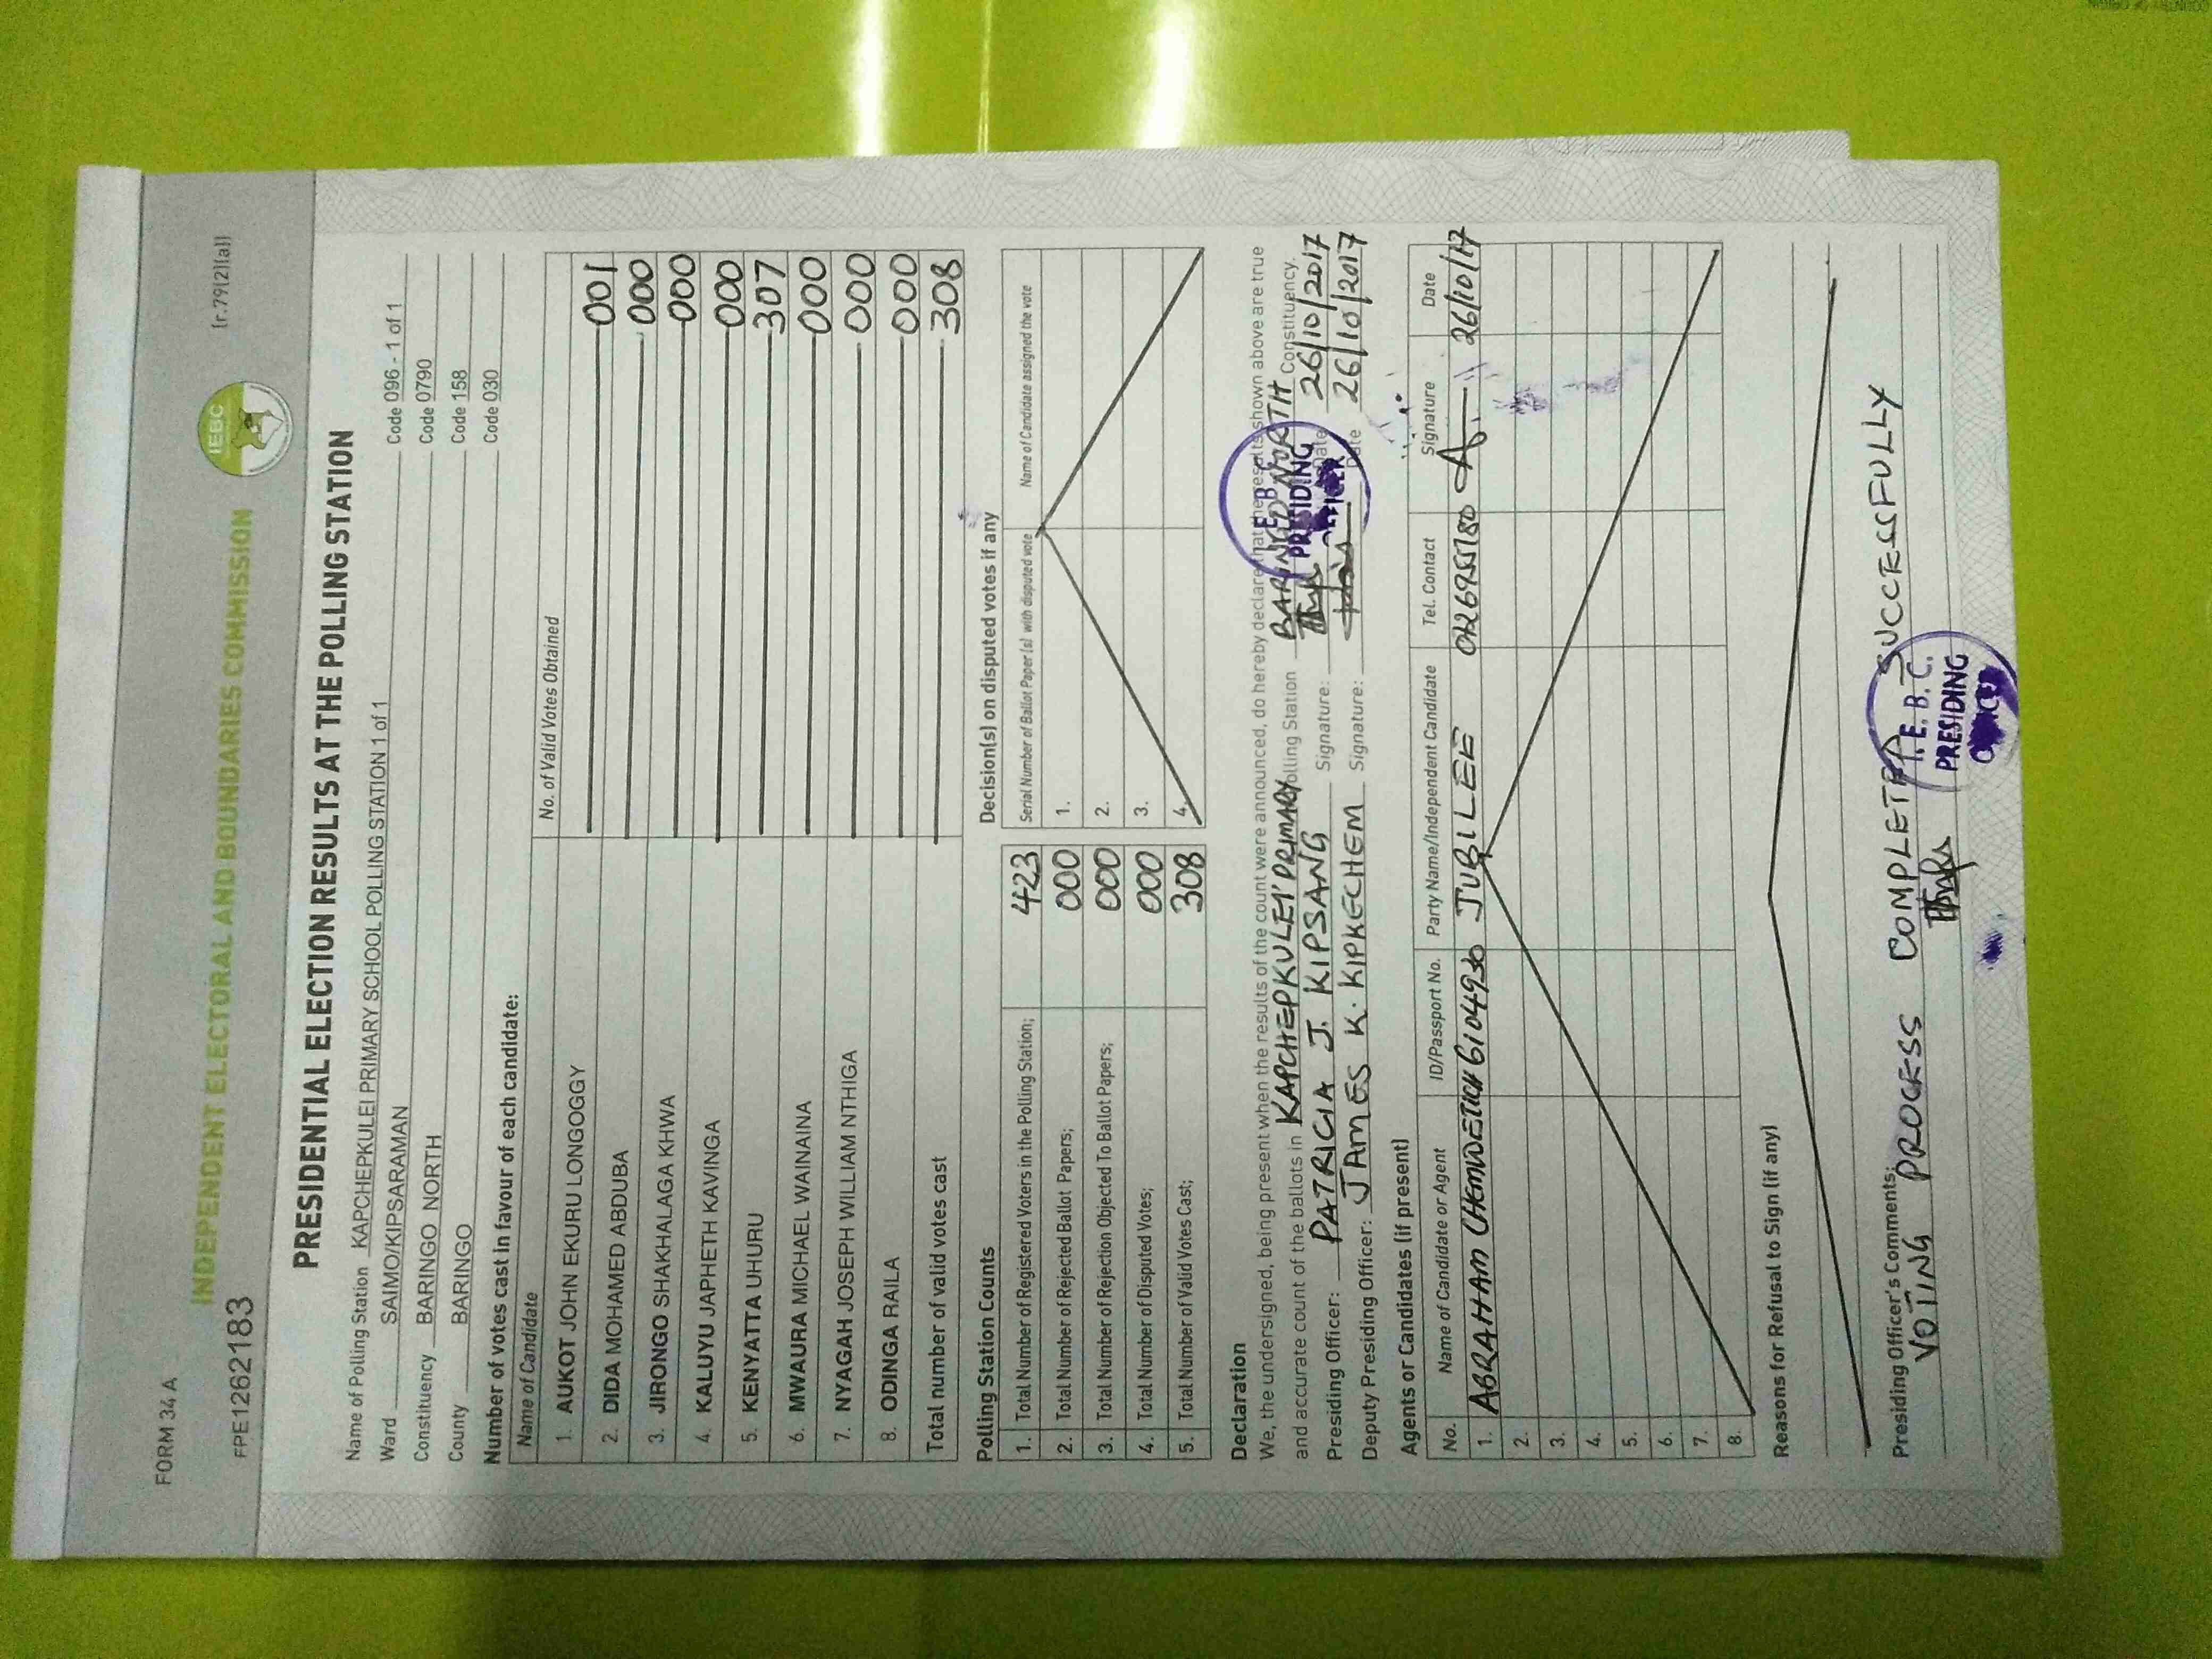 FORM 34 A (r.79(2)(a))
INDEPENDENT ELECTORAL AND BOUNDARIES COMMISSION IEBC
FPE1262183
PRESIDENTIAL ELECTION RESULTS AT THE POLLING STATION
Name of Polling Station KAPCHEPKULEI PRIMARY SCHOOL POLLING STATION 1 of 1 Code 096 - 1 of 1
Ward SAIMO/KIPSARAMAN Code 0790
Constituency BARINGO NORTH Code 158
County BARINGO Code 030
Number of votes cast in favour of each candidate:
Name of Candidate No. of Valid Votes Obtained
1. AUKOT JOHN EKURU LONGOGGY 001
2. DIDA MOHAMED ABDUBA 000
3. JIRONGO SHAKHALAGA KHWA 000
4. KALUYU JAPHETH KAVINGA 000
5. KENYATTA UHURU 307
6. MWAURA MICHAEL WAINAINA 000
7. NYAGAH JOSEPH WILLIAM NTHIGA 000
8. ODINGA RAILA 000
Total number of valid votes cast 308
Polling Station Counts
1. Total Number of Registered Voters in the Polling Station; 423
2. Total Number of Rejected Ballot Papers; 000
3. Total Number of Rejection Objected To Ballot Papers; 000
4. Total Number of Disputed Votes; 000
5. Total Number of Valid Votes Cast; 308
Decision(s) on disputed votes if any
Serial Number of Ballot Paper(s) with disputed vote Name of Candidate assigned the vote
1.
2.
3.
4.
Declaration
We, the undersigned, being present when the results of the count were announced, do hereby declare that the results shown above are true
and accurate count of the ballots in KAPCHEPKULEI PRIMARY Polling Station BARINGO NORTH Constituency.
Presiding Officer: PATRICIA J. KIPSANG Signature: Date 26/10/2017
Deputy Presiding Officer: JAMES K. KIPKECHEM Signature: Date 26/10/2017
I.E.B.
PRESIDING
Agents or Candidates (if present)
No. Name of Candidate or Agent ID/Passport No. Party Name/Independent Candidate Tel. Contact Signature Date
1. ABRAHAM 6104930 JUBILEE 26/10/17
2.
3.
4.
5.
6.
7.
8.
Reasons for Refusal to Sign (if any)
Presiding Officer's Comments:
VOTING PROCESS COMPLETED SUCCESSFULLY
I.E.B.C.
PRESIDING
COUNTRY OF ORIGIN